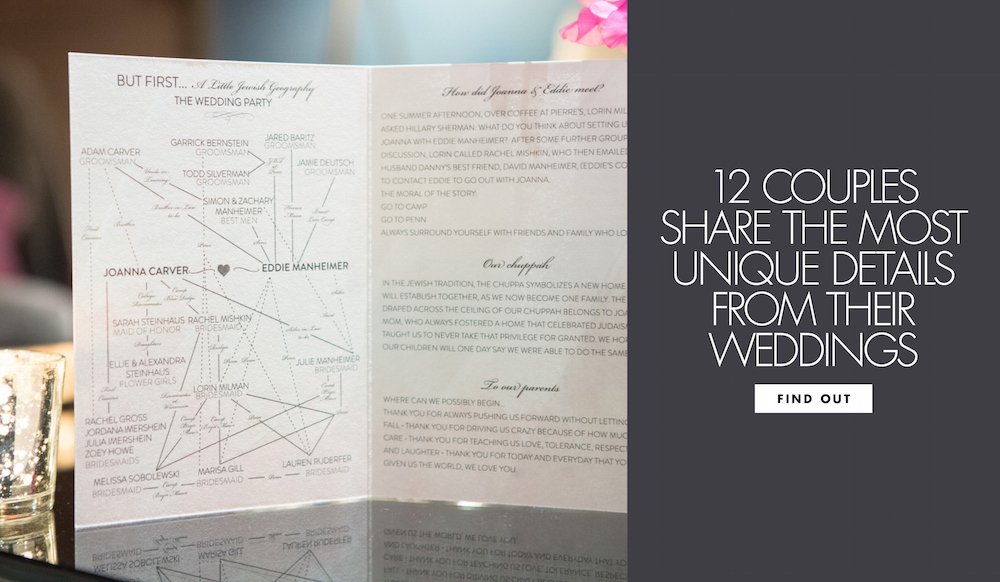 BUT FIRST... A Little Jewish Geography
THE WEDDING PARTY
JARED BARITZ
GROOMSMAN
GARRICK BERNSTEIN
GROOMSMAN
ADAM CARVER
GROOMSMAN
JAMIE DEUTSCH
GROOMSMAN
TODD SILVERMAN
GROOMSMAN
SIMON & ZACHARY
MANHEIMER
BEST MEN
Brother-in-Law
to be
Brother
Penn
Sons
JOANNA CARVER
EDDIE MANHEIMER
College
Roommates
Camp
SARAH STEINHAUS
MAID OF HONOR
RACHEL MISHKIN
BRIDESMAID
Sister
Sister-in-Law
to be
Daughters
ELLIE & ALEXANDRA
STEINHAUS
FLOWER GIRLS
JULIE MANHEIMER
BRIDESMAID
LORIN MILMAN
BRIDESMAID
RACHEL GROSS
JORDANA IMERSHEIN
JULIA IMERSHEIN
ZOEY HOWE
BRIDESMAIDS
MELISSA SOBOLEWSKI
BRIDESMAID
MARISA GILL
BRIDESMAID
LAUREN RUDERFER
BRIDESMAID
Camp
Penn
How did Joanna & Eddie meet?
ONE SUMMER AFTERNOON, OVER COFFEE AT PIERRE'S, LORIN MIL
ASKED HILLARY SHERMAN: WHAT DO YOU THINK ABOUT SETTING U
JOANNA WITH EDDIE MANHEIMER? AFTER SOME FURTHER GROUP
DISCUSSION, LORIN CALLED RACHEL MISHKIN, WHO THEN EMAILED
HUSBAND DANNY'S BEST FRIEND, DAVID MANHEIMER, (EDDIE'S CO
TO CONTACT EDDIE TO GO OUT WITH JOANNA.
THE MORAL OF THE STORY:
GO TO CAMP
GO TO PENN
ALWAYS SURROUND YOURSELF WITH FRIENDS AND FAMILY WHO LO
Our chuppah
IN THE JEWISH TRADITION, THE CHUPPA SYMBOLIZES A NEW HOME
WILL ESTABLISH TOGETHER, AS WE NOW BECOME ONE FAMILY. THE
DRAPED ACROSS THE CEILING OF OUR CHUPPAH BELONGS TO JOA
MOM, WHO ALWAYS FOSTERED A HOME THAT CELEBRATED JUDAIS
TAUGHT US TO NEVER TAKE THAT PRIVILEGE FOR GRANTED. WE HO
OUR CHILDREN WILL ONE DAY SAY WE WERE ABLE TO DO THE SAME
To our parents
WHERE CAN WE POSSIBLY BEGIN...
THANK YOU FOR ALWAYS PUSHING US FORWARD WITHOUT LETTING
FALL - THANK YOU FOR DRIVING US CRAZY BECAUSE OF HOW MUC
CARE - THANK YOU FOR TEACHING US LOVE, TOLERANCE, RESPEC
AND LAUGHTER - THANK YOU FOR TODAY AND EVERYDAY THAT YO
GIVEN US THE WORLD, WE LOVE YOU.
12 COUPLES
SHARE THE MOST
UNIQUE DETAILS
FROM THEIR
WEDDINGS
FIND OUT